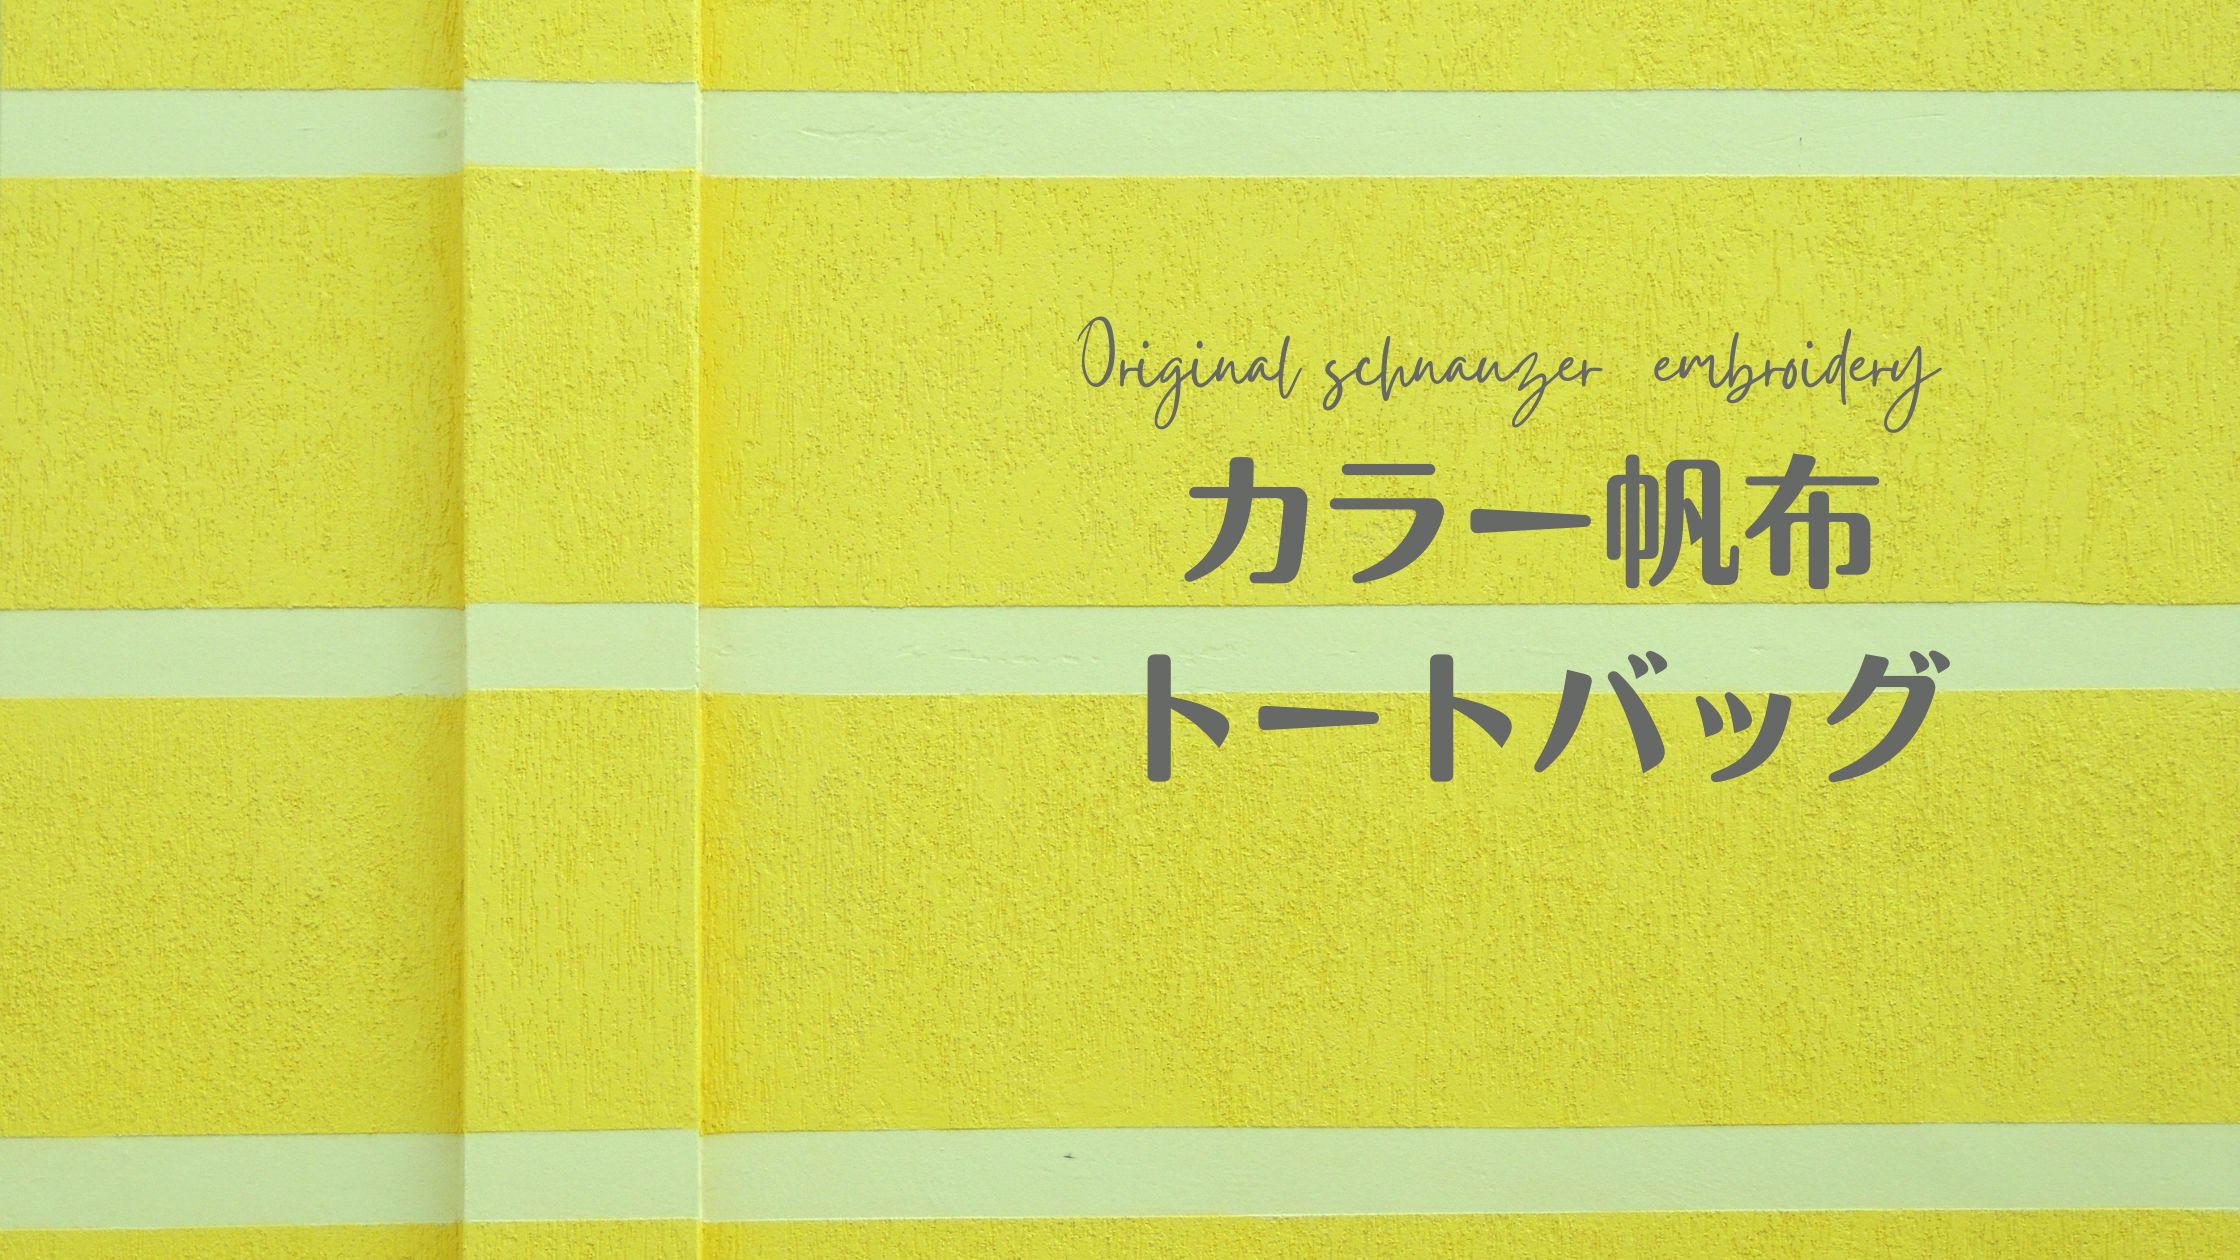 Original schnauzer embroidery
カラー帆布
トートバッグ